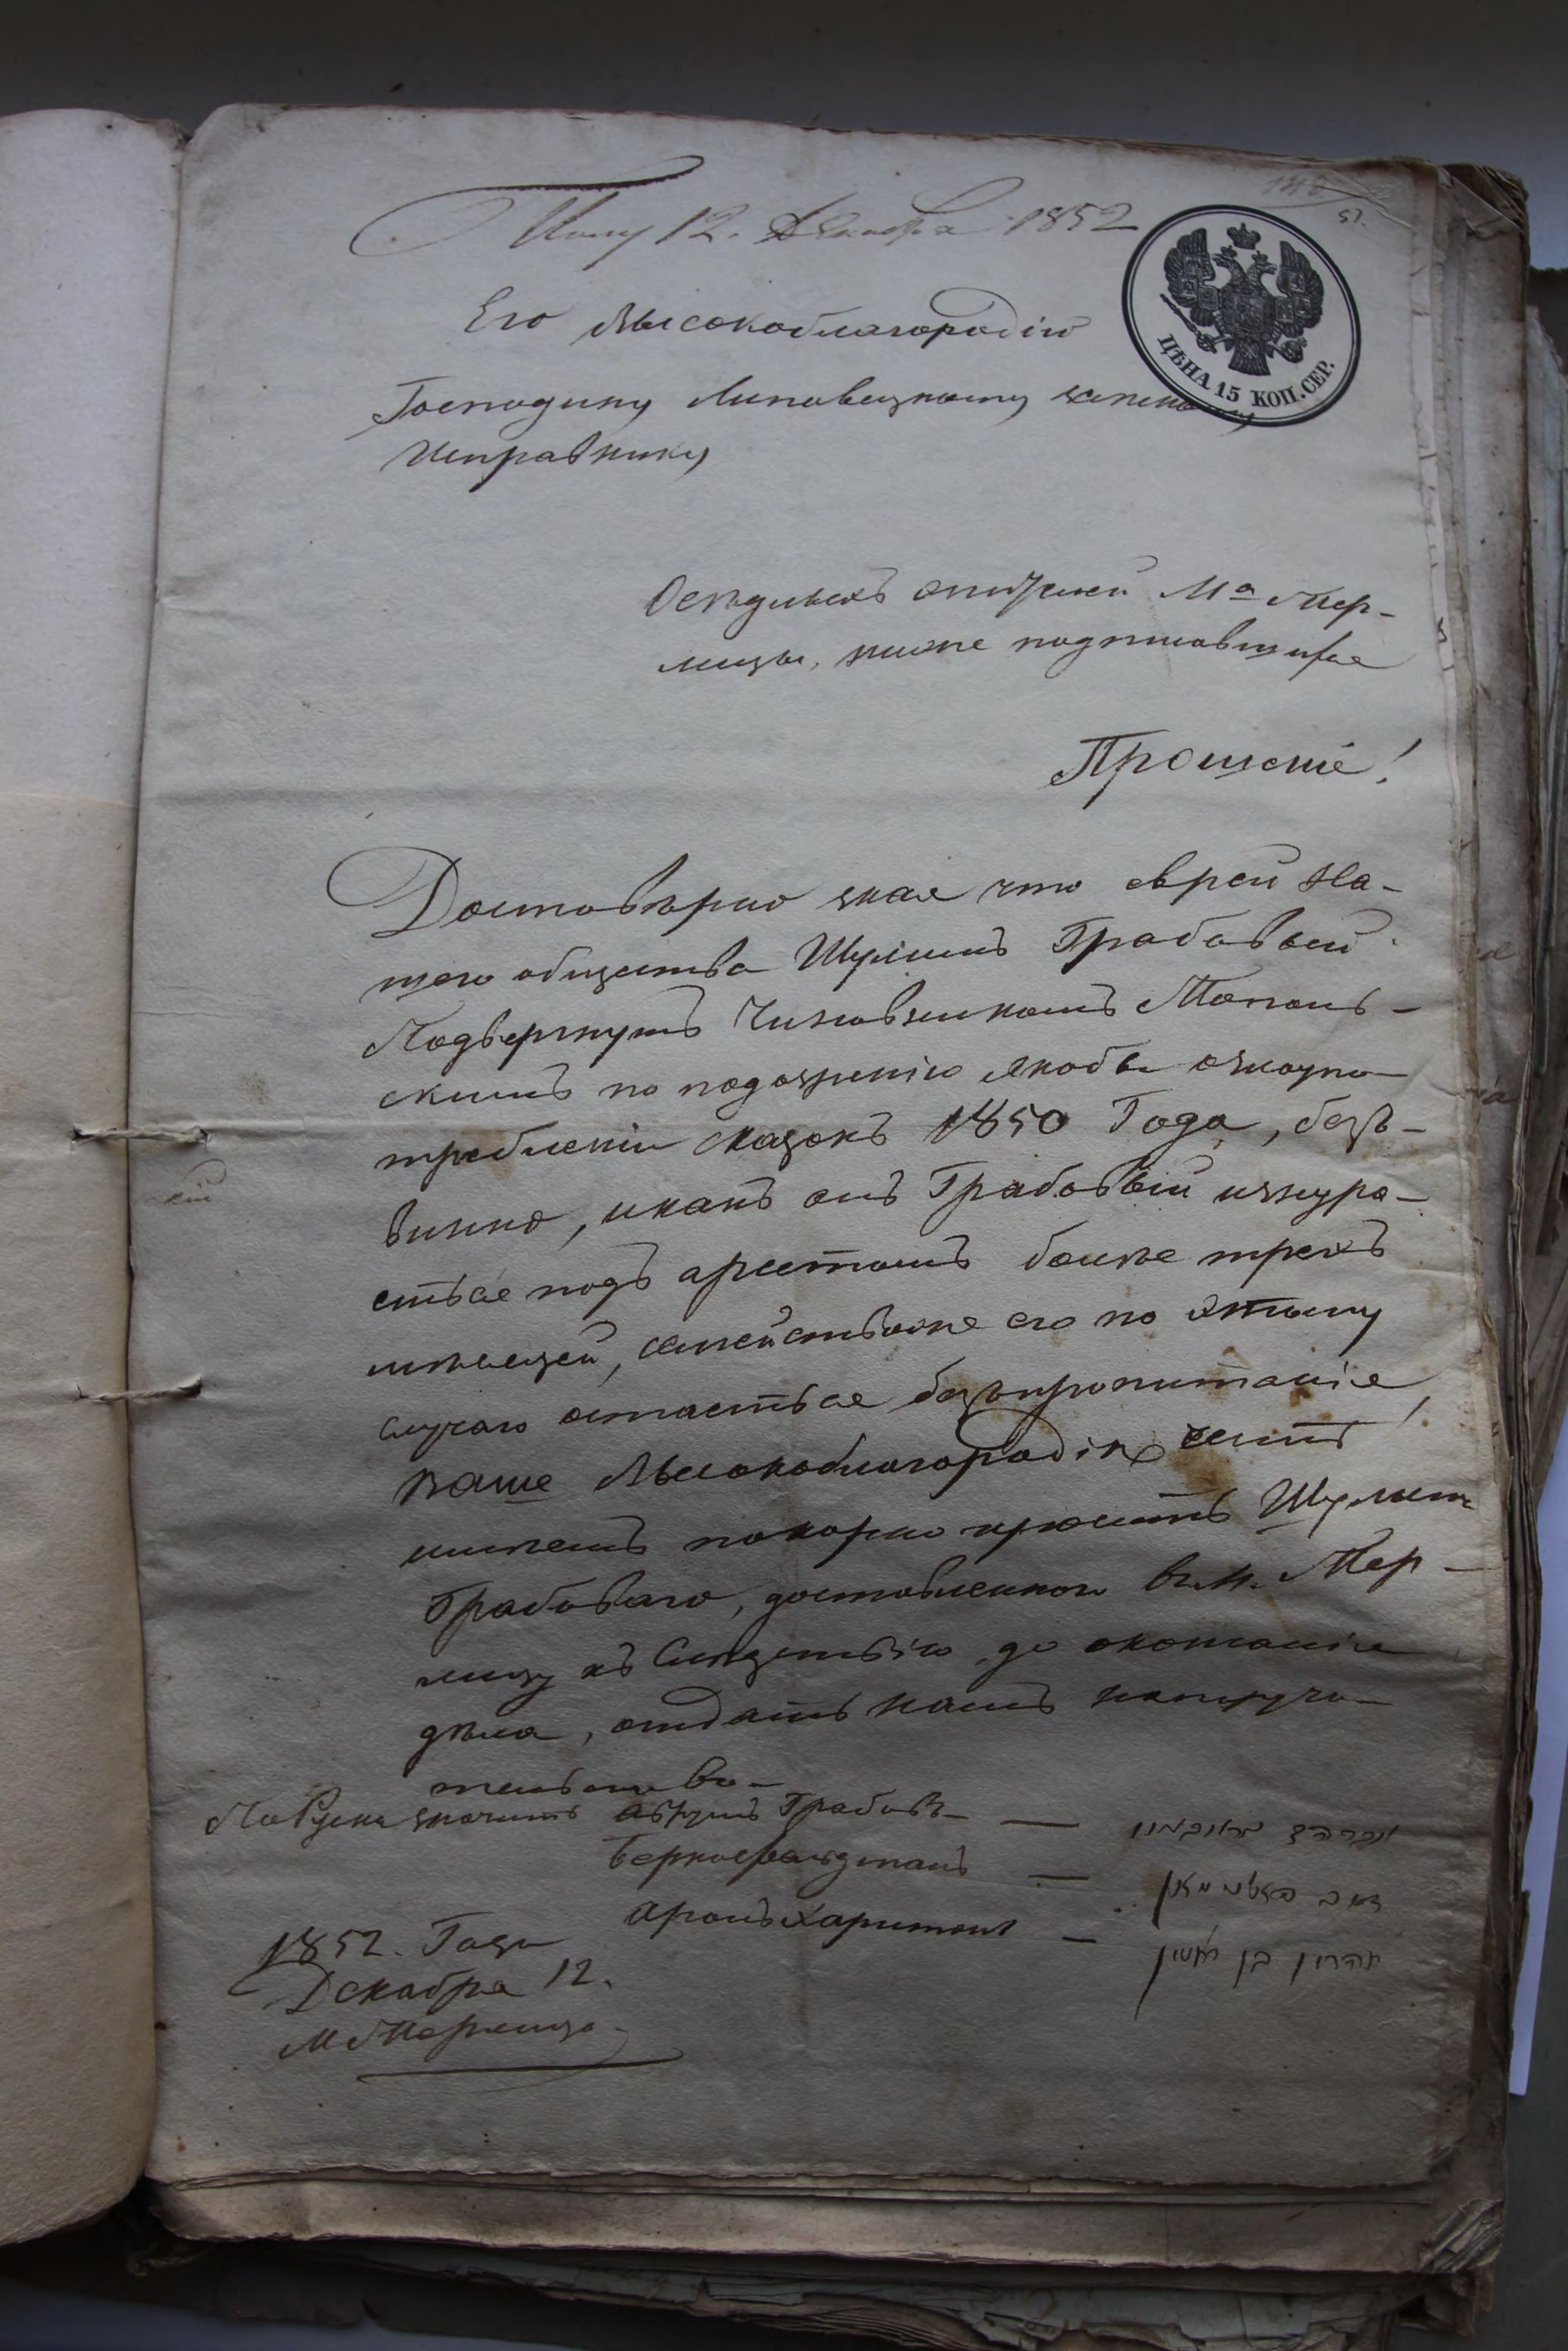 12. Декабря 1852
51.
ЦѢНА 15 КОП. СЕР.
Его Высокоблагородію
Господину Липовецкому земско
Исправнику
Осѣдлыхъ евреей Мª Тер-
лицы, ниже подписавшихся
Прошеніе!
Достовѣрно зная что еврей На-
шего общества Шулимъ Грабовой
Подвергнутъ Чиновникомъ
скимъ по подозренію якобы озлоупо-
требленіи сказокъ 1850 Года, безъ-
винно, икакъ онъ Грабовій изнура-
еться подъ арестомъ более трехъ
мѣсяцей, семействоже его по этому
случаю остаеться безъпропитанія,
Ваше Высокоблагородіе
имѣемъ покорно просить Шулима
Грабоваго, доставленного въ м. Тер-
лицу къ Слѣдствію до окончанія
дѣла, отдать намъ напоручи-
тельство-
По Руски значитъ Аврумъ Грабовъ —
Берко —
Аронъ Харитонъ —
אהרון בן
1852. Года
Декабря 12.
М Терлица